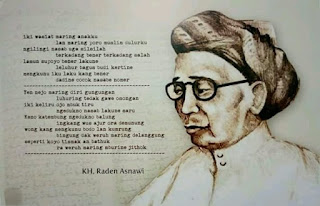 Iki wasiat maring anakku
lan maring poro muslim dulurku
ngilingi nasab ugo silsilah
terkadang bener terkadang salah
lamun kuyoyo bener lakune
leluhur bagus budi kertine
mengkunu iku laku kang bener
dadine cocok nasabe nomer
Ten nejo maring diri gungungan
luhuring tedak gawe osongan
iki keliru ojo anuk tiru
ngedukno nasab lakune saru
Keno katembung ngedukno balung
ingkang wus ajur ora demunung
wong kang mengkunu bodo lan kumrung
bingung dak weruh maring delenggung
seperti koyo tismak an bathuk
ra weruh maring mburine jithok
KH, Raden Asnawi